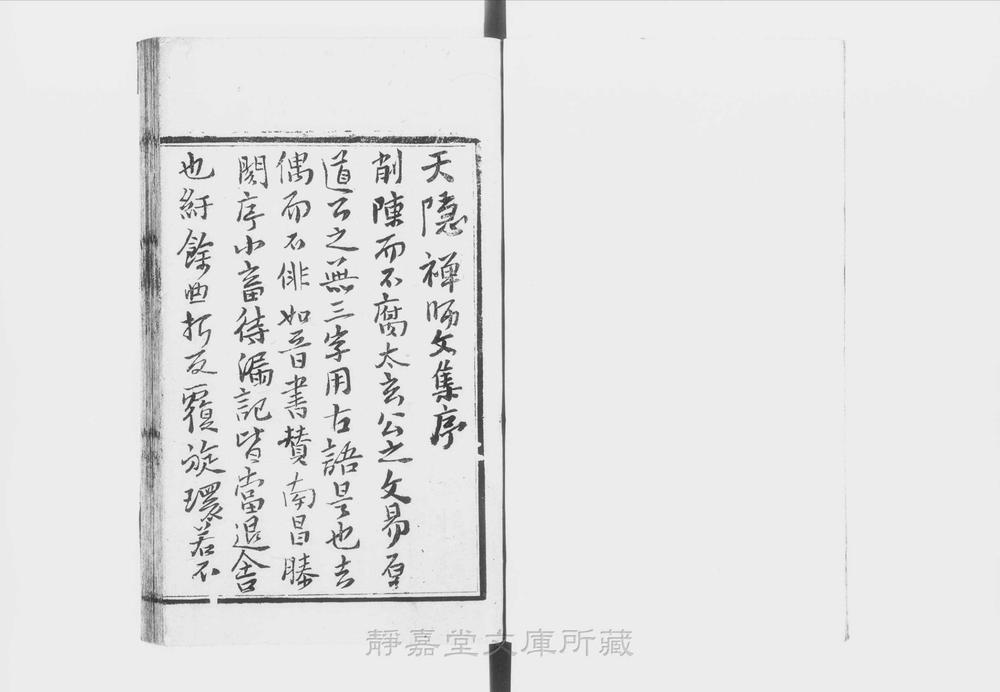 天隱禪師文集序
削陳而不腐太玄公之文易原
道公之無三字用古語是也去
偶而不俳如晉書贊南昌滕
閣序小畜待漏記皆當退舍
也紆餘曲折反覆旋環若不
靜嘉堂文庫所藏